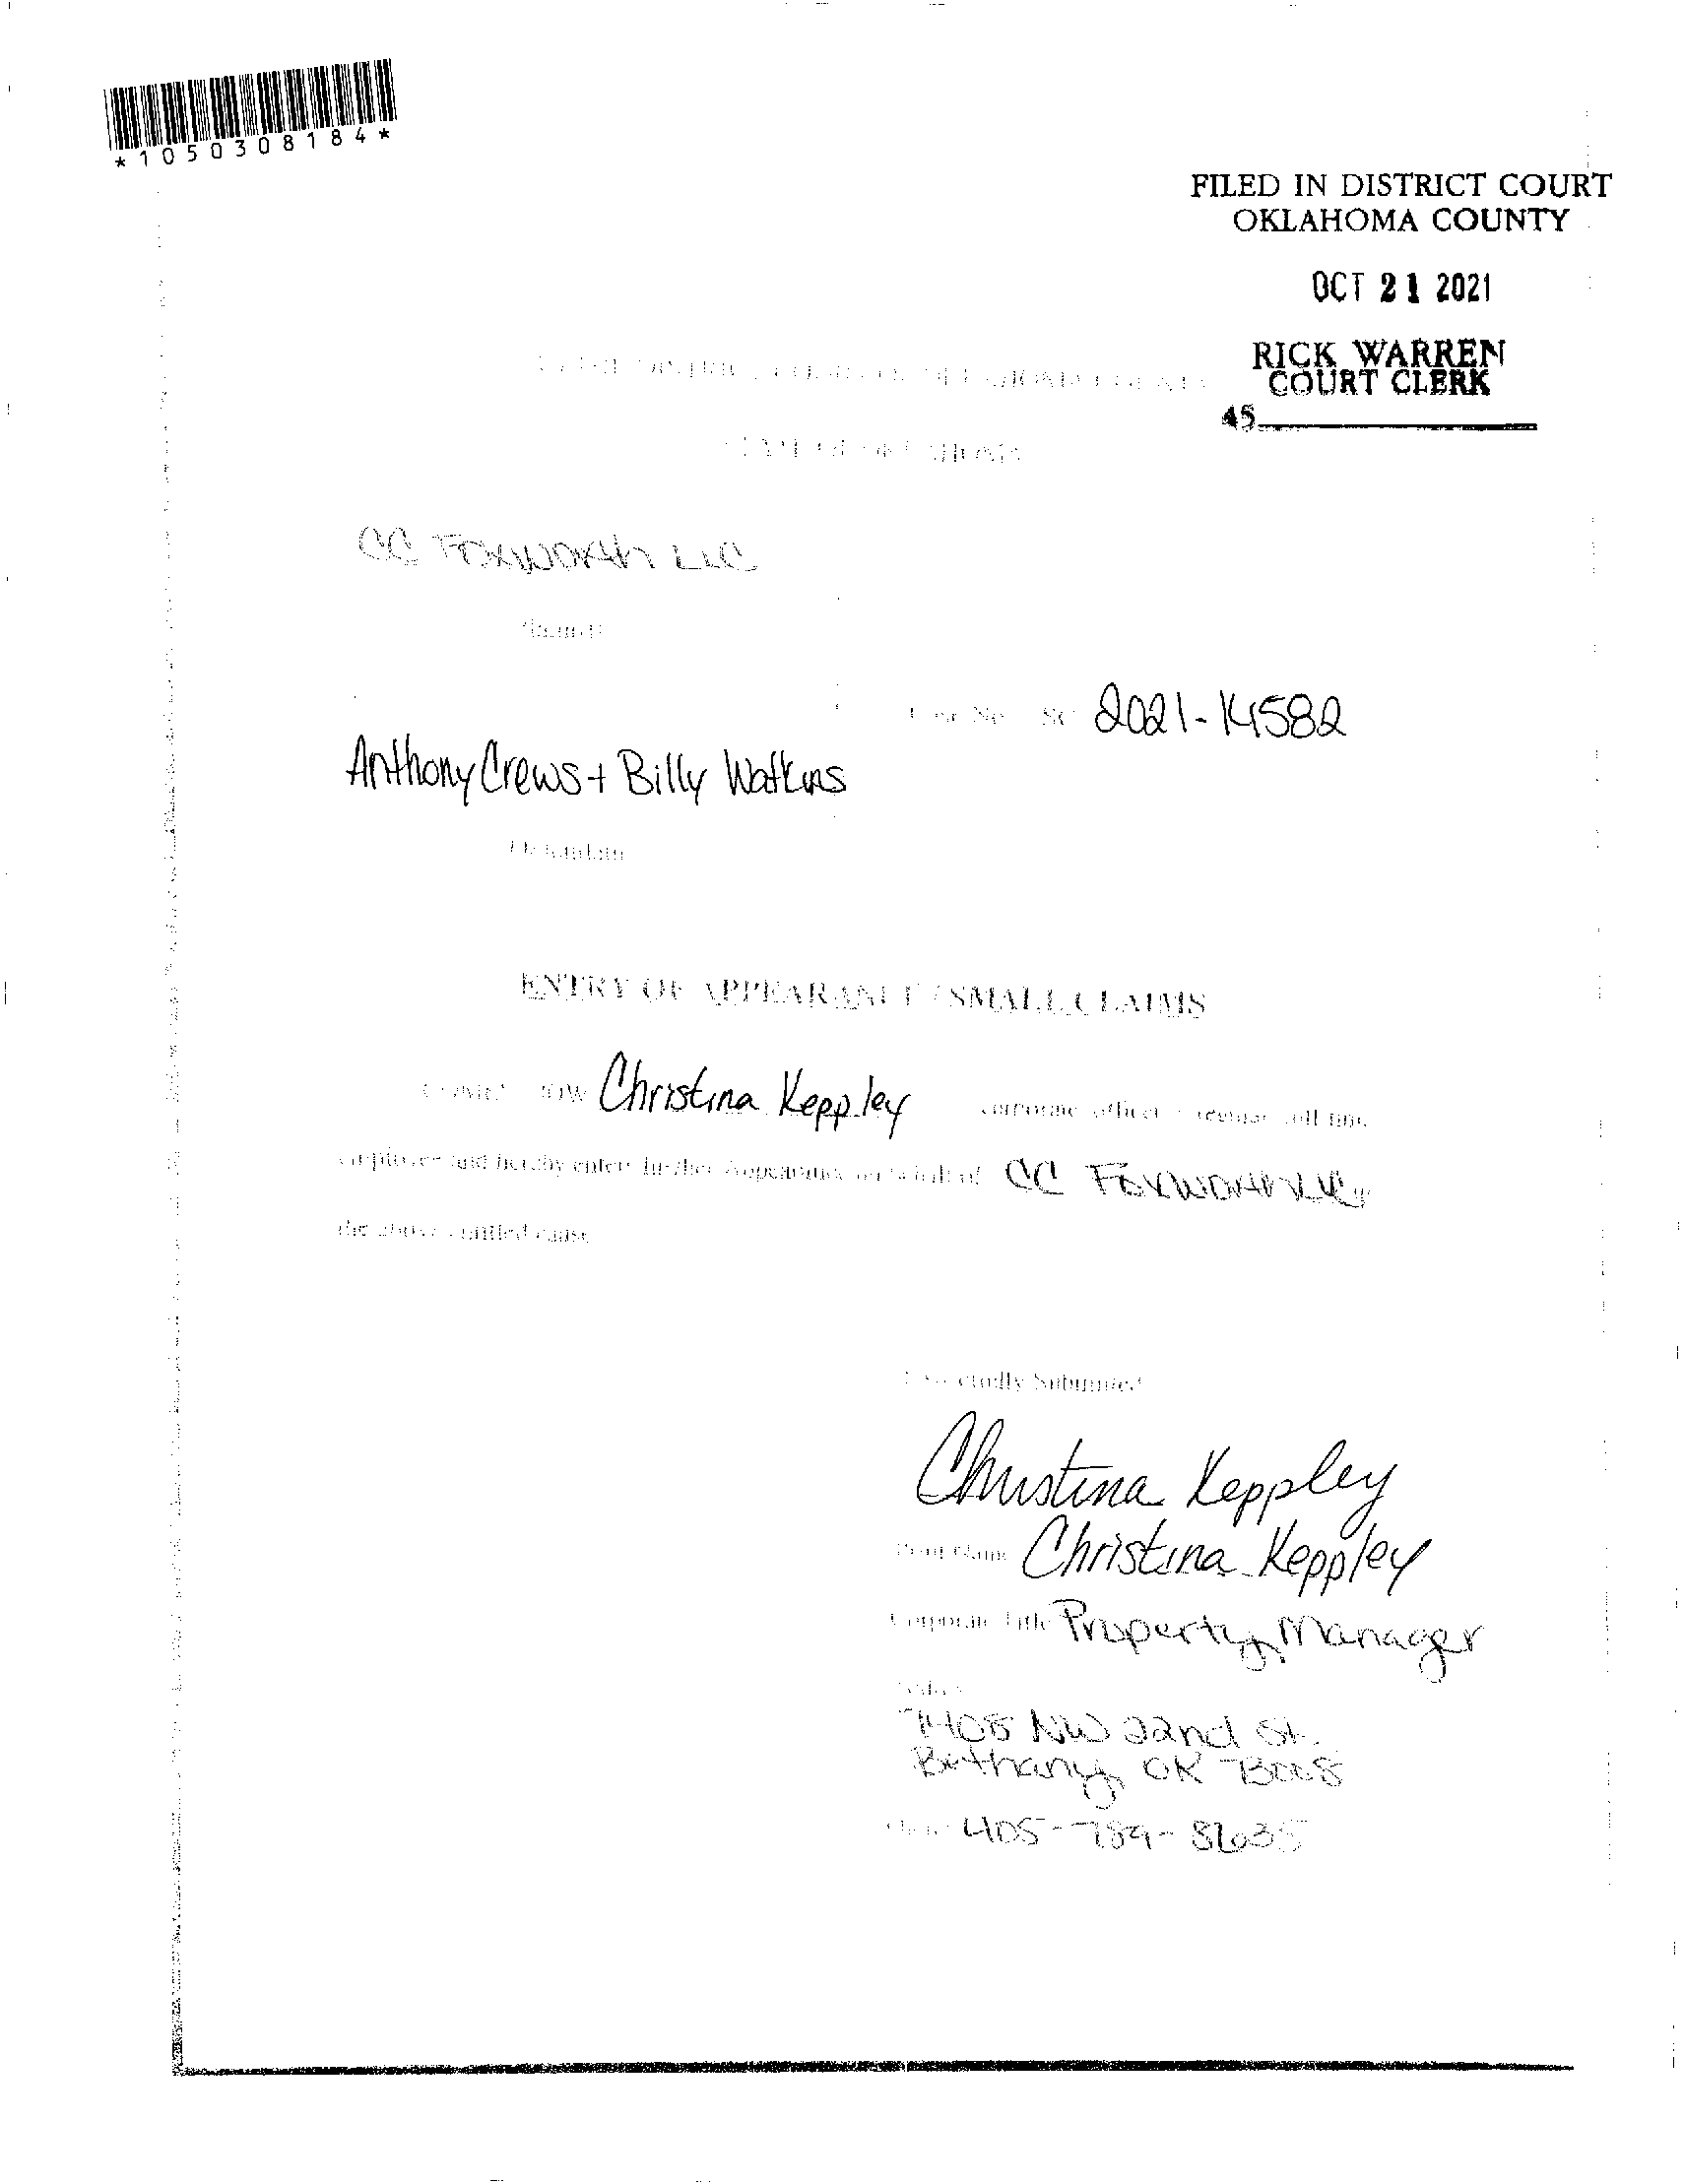 *1050308184*
FILED IN DISTRICT COURT
OKLAHOMA COUNTY
OCT 21 2021
RICK WARREN
COURT CLERK
45
CC Foxworth LLC
Plaintiff
Case No SC 2021-14582
Anthony Crews + Billy Watkins
Defendant
ENTRY OF APPEARANCE / SMALL CLAIMS
COMES NOW Christina Keppley corporate officer regular full time
employee and hereby enters further Appearance on behalf of CC Foxworth LLC in
the above entitled cause
Respectfully Submitted
Christina Keppley
Print Name Christina Keppley
Corporate Title Property Manager
7408 NW 22nd St.
Bethany, OK 73008
405-789-8635